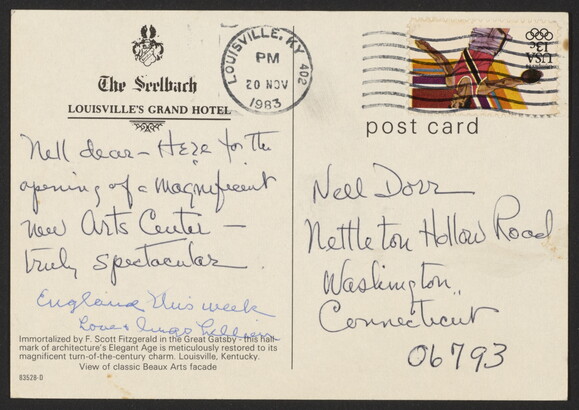 The Seelbach
LOUISVILLE'S GRAND HOTEL
LOUISVILLE, KY 402
PM
20 NOV
1983
USA
13c
post card
Nell dear - Here for the
opening of a magnificent
new Arts Center -
truly spectacular.
England this week
Love
Nell Dorr
Nettleton Hollow Road
Washington,
Connecticut
06793
Immortalized by F. Scott Fitzgerald in the Great Gatsby - this hall-
mark of architecture's Elegant Age is meticulously restored to its
magnificent turn-of-the-century charm. Louisville, Kentucky.
View of classic Beaux Arts facade
83528-D